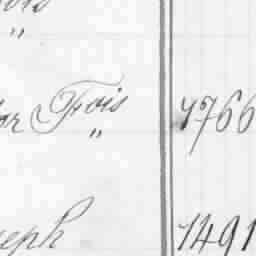 "
or Frois 1766
"
seph 1491